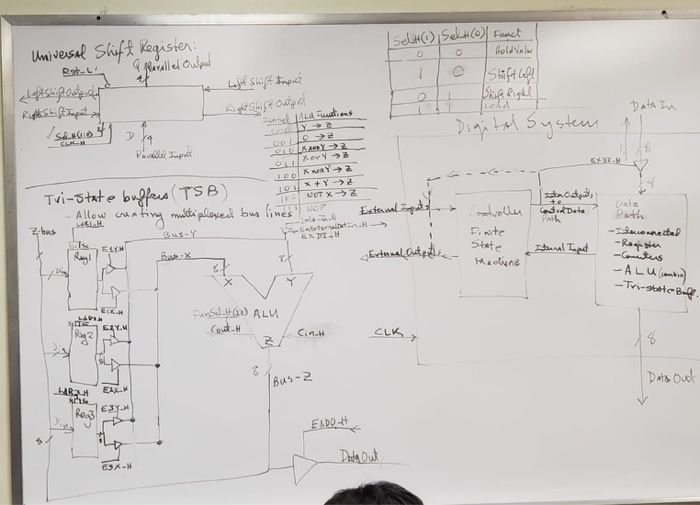 Universal Shift Register:
Q Parallel Output
Rst-L
Left Shift Output
Left Shift Input
Right Shift Input
Right Shift Output
Sel-H(1:0)
CLK-H
D
4
Parallel Input
Sel-H(1) Sel-H(0) Funct
0 0 Hold Value
1 0 Shift Left
0 1 Shift Right
1 1 Load
Funsel ALU Functions
000 Y → Z
001 0 → Z
010 X AND Y → Z
011 X or Y → Z
100 X XOR Y → Z
101 X + Y → Z
110 NOT X → Z
111 NOT
Digital System
Data In
8
EXDI-H
8
External Input
External Output
CLK
Controller
Finite
State
Machine
Control Data
Path
Data
Path:
- Interconnected
- Register
- Counters
- ALU (combin)
- Tri-state Buff.
8
Data Out
Tri-State buffers (TSB)
- Allow creating multiplexed bus lines
Data-In-H
EXDI-H
Zbus
Bus-Y
Bus-X
Reg1
Din
E1Y-H
E1X-H
Reg2
Din
E2Y-H
E2X-H
Reg3
Din
E3Y-H
E3X-H
8
8
8
X
Y
ALU
Z
Cout-H
Cin-H
8
Bus-Z
EXDO-H
Data Out